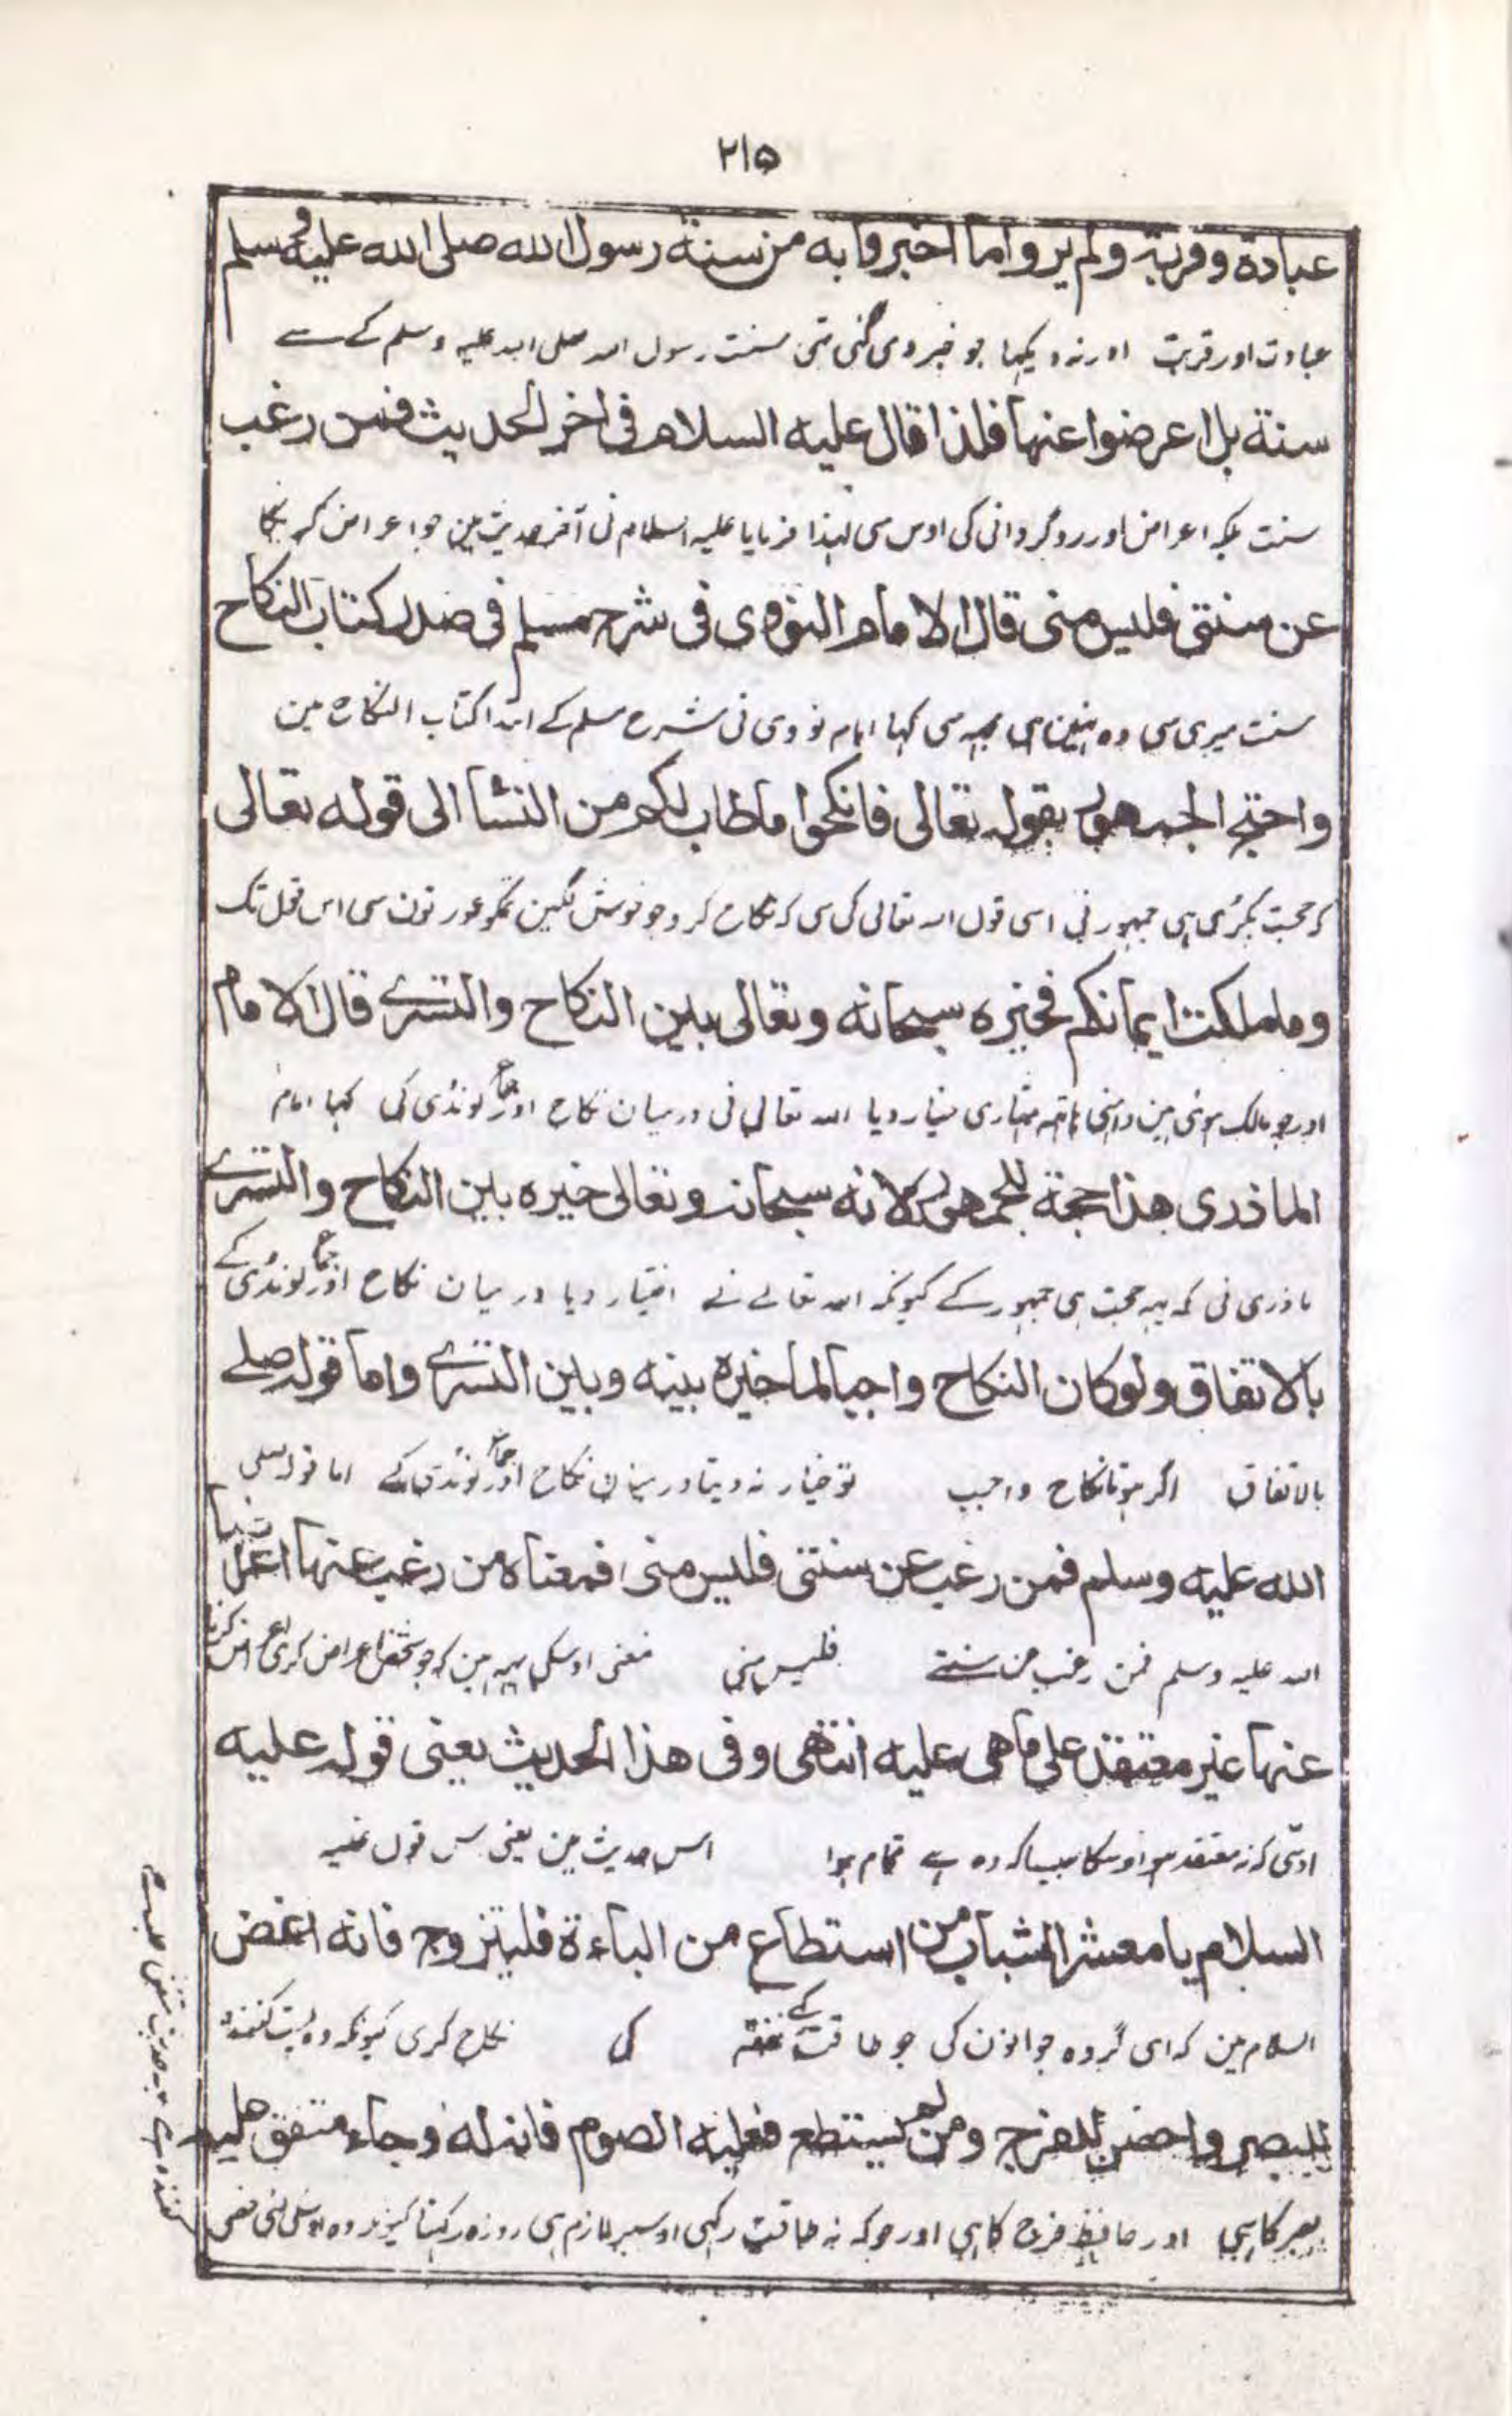 ٢١٥
عبادة وقربة ولم يروا ما اخبروا به من سنة رسول الله صلى الله عليه وسلم
عبادت اور قربت اور نہ دیکھا جو خبر دی گئی تہی سنت رسول اللہ صلی اللہ علیہ وسلم کے سے
سنة بل اعرضوا عنها فلذا قال عليه السلام فى اخر الحديث فمن رغب
سنت بلکہ اعراض اور روگردانی کی اوس سی لہذا فرمایا علیہ السلام نی آخر حدیث مین جو اعراض کریگا
عن سنتى فليس منى قال الامام النووى فى شرح مسلم فى صدر كتاب النكاح
سنت میری سی وہ نہین ہی مجہہ سی کہا امام نووی نی شرح مسلم کے ابتدا کتاب النکاح مین
واحتج الجمهور بقوله تعالى فانكحوا ما طاب لكم من النسا الى قوله تعالى
کہ حجت پکڑی ہی جمہور نی اسی قول اللہ تعالی کی سی کہ نکاح کرو جو خوش لگین تمکو عورتون سی اس قول تک
وما ملكت ايمانكم فخيره سبحانه وتعالى بين النكاح والتسرى قال الامام
اور جو مالک ہوئی ہین داہنی ہاتہہ تمہاری خیار دیا اللہ تعالی نی درمیان نکاح اور جماع لونڈی کی کہا امام
الماذرى هذا حجة للجمهور لانه سبحانه وتعالى خيره بين النكاح والتسرى
ماذری نی کہ یہہ حجت ہی جمہور کے کیونکہ اللہ تعالے نے اختیار دیا درمیان نکاح اور جماع لونڈی کے
بالاتفاق ولو كان النكاح واجبا لما خيره بينه وبين التسرى واما قوله صلے
بالاتفاق اگر ہوتا نکاح واجب تو خیار نہ دیتا درمیان نکاح اور جماع لونڈی کے اما قولہ صلی
الله عليه وسلم فمن رغب عن سنتى فليس منى فمعناه من رغب عنها اعراضا
اللہ علیہ وسلم فمن رغب عن سنتے فلیس منی معنی اوسکی یہہ ہین کہ جو شخص اعراض کری اعراض کرنا
عنها غير معتقد على ما هى عليه انتهى وفى هذا الحديث يعنى قوله عليه
اوسی کہ نہ معتقد ہو اوسکا جیسا کہ وہ ہے تمام ہوا اس حدیث مین یعنی قول علیہ
السلام يا معشر الشباب من استطاع من الباءة فليتزوج فانه اغض
السلام مین کہ ای گروہ جوانون کی جو طاقت نفقہ کے کی نکاح کری کیونکہ وہ پست کنندہ
للبصر واحصن للفرج ومن لم يستطع فعليه الصوم فانه له وجاء متفق عليه
بصر کا ہی اور حافظ فرج کا ہی اور جو کہ نہ طاقت رکہی اوسپر لازم ہی روزہ رکہنا کیونکہ وہ اوسکی لئی خصی
کنندہ ہے یہہ حدیث متفق علیہ ہے